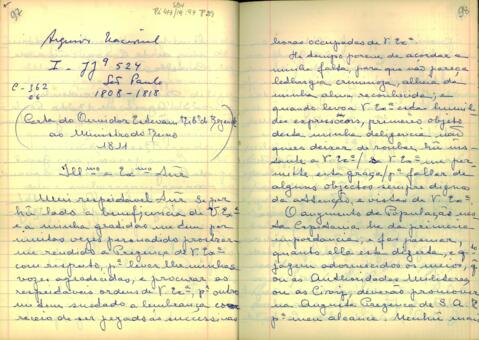 97
SBH
Pi 413/14:97 P 23
Arquivo Nacional
I - JJª 524
São Paulo
C - 362
06
1808 - 1818
(Carta do Ouvidor Estevam Rib.º de Rezende
ao Ministro do Reino
1811
Ill mo e Ex mo Snr
Meu respeitavel Snr Se por
hũ lado a beneficencia de V. Exª
e a minha gratidão me tem por
muitas vezes persuadido procurar
me rendido a Prezença de V. Exª
com respeito, pª
vozes agradecidas, e procurar as
respeitaveis ordens de V. Exª, pª outro
me tem sustado a lembrança e o
receio de ser pezado ás successivas
98
horas occupadas de V. Exª.
He tempo porem de acordar a
minha falta, para que não pareça
lethargia criminoza, alheia da
minha alma reconhecida, e
quando levo a V. Exª estas humil
des expressões, primeiro objeto
desta minha deligencia, não
quero deixar de roubar hũ ins
tante a V. Exª / se V. Exª me per
mitte esta graça / pª fallar de
alguns objectos sempre dignos
da attenção, e vistas de V. Exª.
O augmento de População nes
ta Capitania he da primeira
importancia, e
quanto ella está
os meios, q' 
ou as Authoridades Militares
ou as Civis, deverão promover
na Augusta Prezença de S. A. R.
pª meu alcance. Nenhũ mais